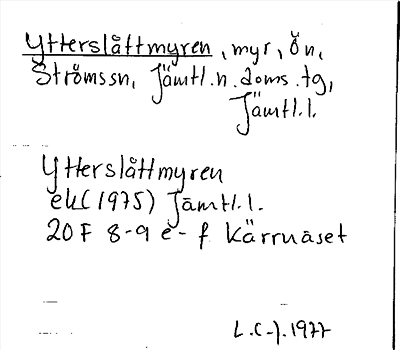 Ytterslåttmyren, myr, Ön,
Ströms sn, Jämtl. n. doms. tg,
Jämtl. l.
Ytterslåttmyren
ek (1975) Jämtl. l.
20 F 8-9 e - f Kärrnäset
L. C-J. 1977